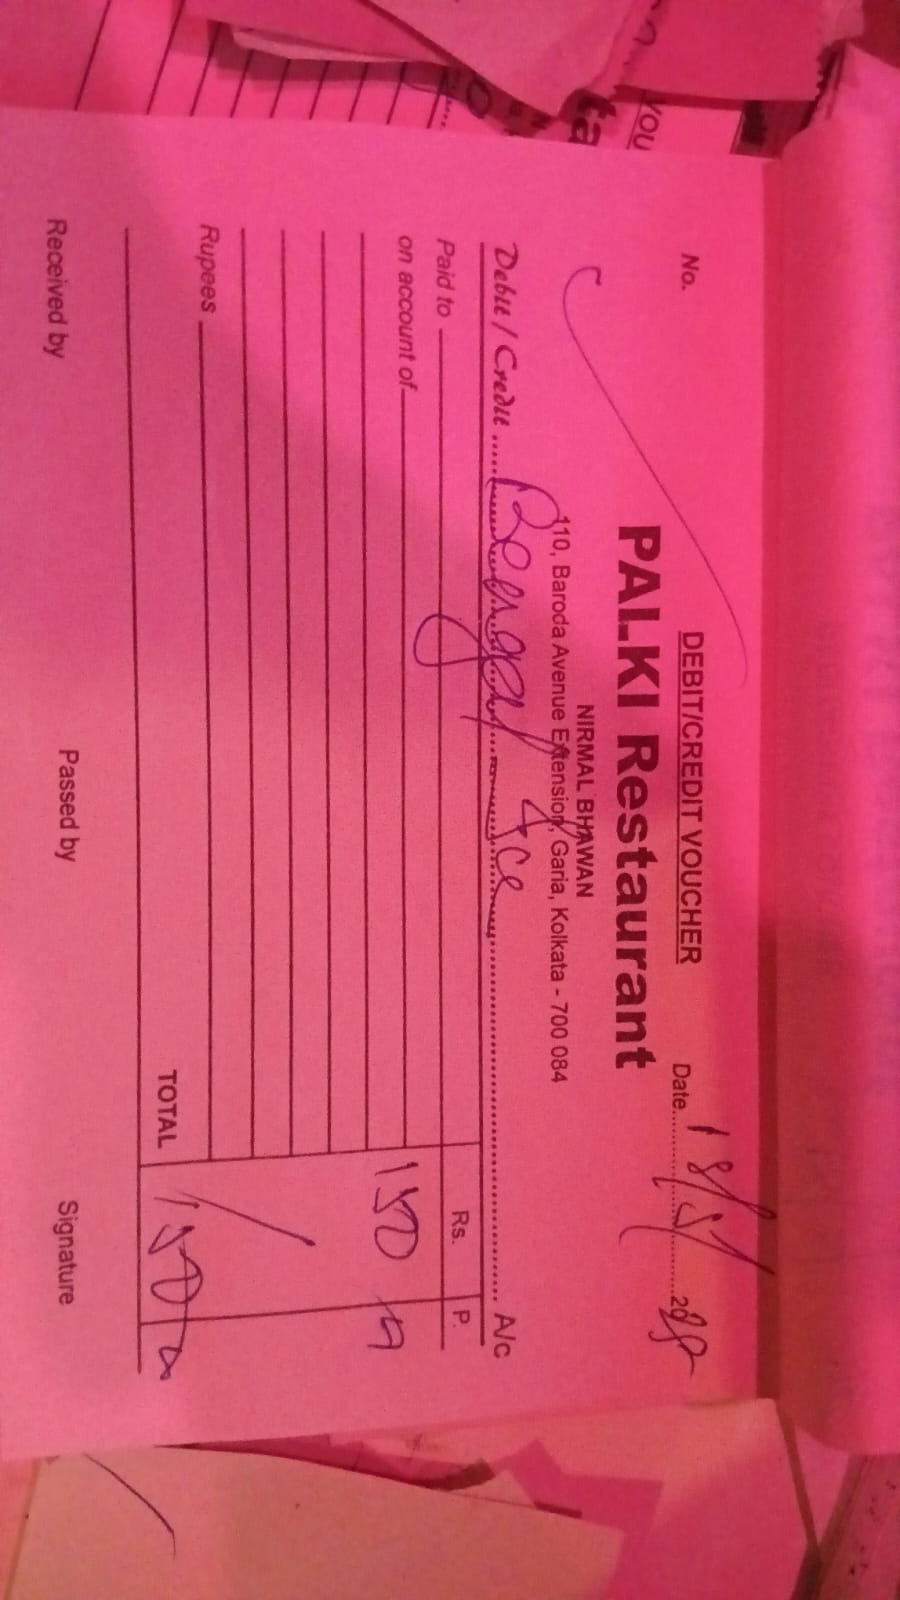 DEBIT/CREDIT VOUCHER
No.
Date 18/5/
PALKI Restaurant
NIRMAL BHAWAN
110, Baroda Avenue Extension, Garia, Kolkata - 700 084
Debit / Credit A/c
Paid to Rs. P.
on account of 150
Rupees
TOTAL 150
Received by Passed by Signature